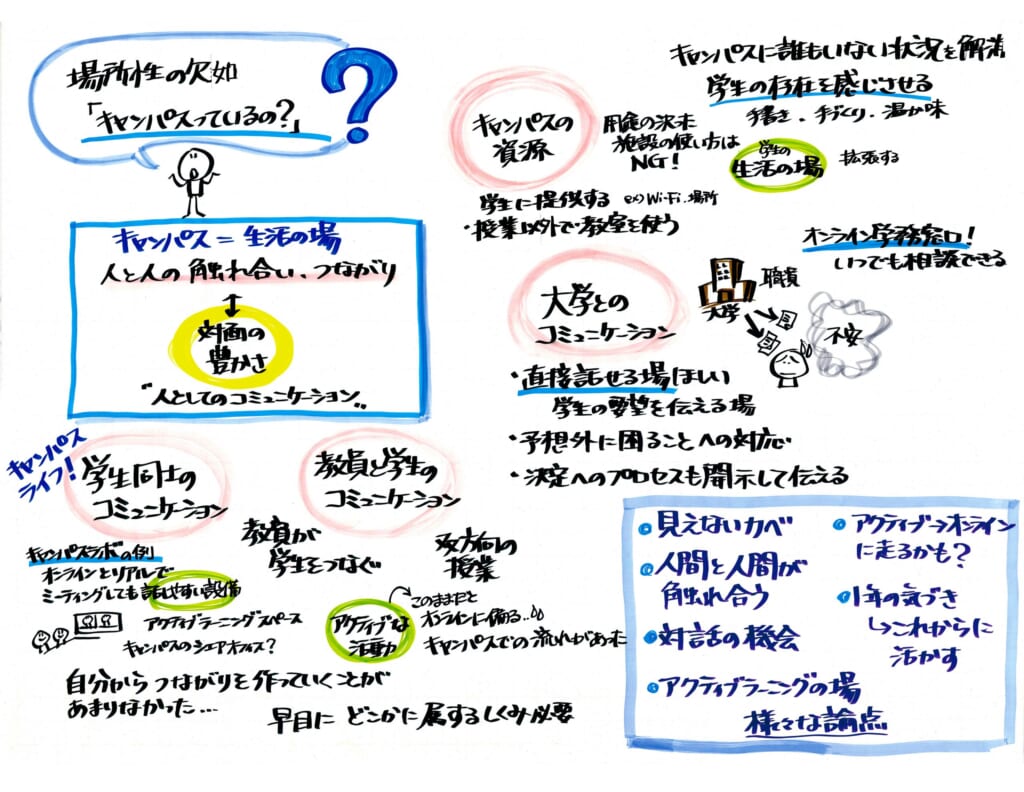 場所性の欠如
「キャンパスっているの?」
?
キャンパス=生活の場
人と人の触れ合い、つながり
対面の
豊かさ
"人としてのコミュニケーション"
キャンパス
ライフ!
学生同士の
コミュニケーション
キャンパスラボの例
オンラインとリアルで
ミーティングしても話しやすい設備
アクティブラーニングスペース
キャンパスのシェアオフィス?
自分からつながりを作っていくことが
あまりなかった…
教員と学生の
コミュニケーション
教員が
学生をつなぐ
双方向の
授業
アクティブな
活動
このままだと
オンラインに偏る…
キャンパスでの流れがあった
早目にどこかに属するしくみ必要
キャンパスに誰もいない状況を解消
学生の存在を感じさせる
手書き・手づくり・温か味
キャンパスの
資源
用途の
施設の使い方は
NG!
学生の
生活の場
拡張する
学生に提供する ex) Wi-Fi・場所
・授業以外で教室を使う
オンライン学務窓口!
いつでも相談できる
大学との
コミュニケーション
大学
職員
不安
・直接話せる場ほしい
学生の要望を伝える場
・予想外に困ることへの対応
・決定へのプロセスも開示して伝える
見えないカベ
人間と人間が
触れ合う
対話の機会
アクティブラーニングの場
アクティブ→オンライン
に走るかも?
1年の気づき
↳これからに
活かす
様々な論点